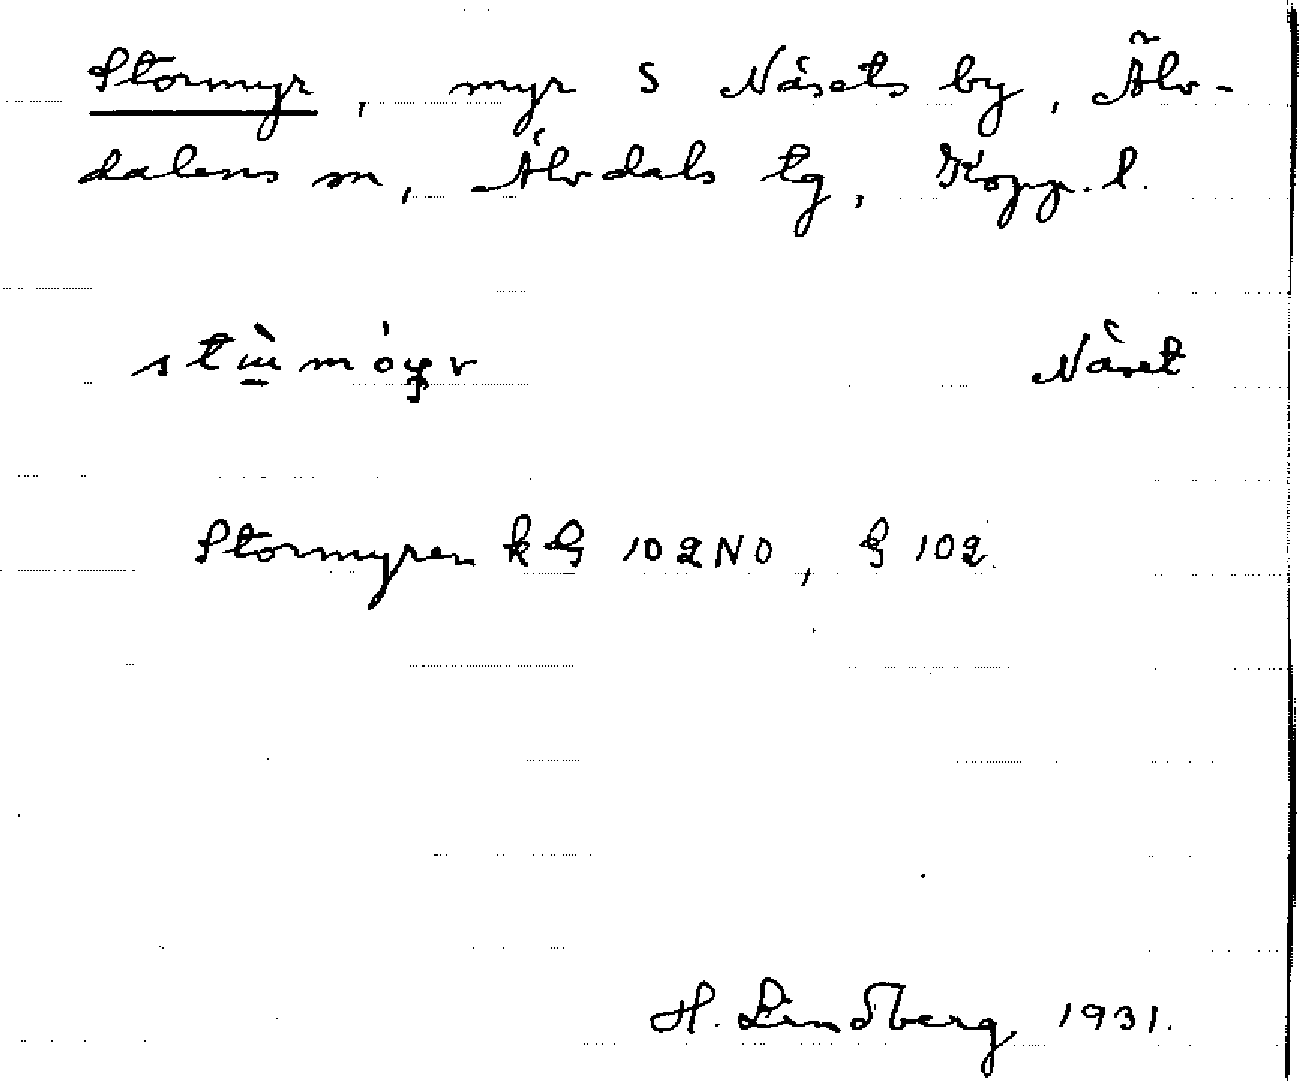 Stormyr, myr S Näsets by, Älv-
dalens sn, Älvdals tg, Kopp. l.
Näset
Stormyren k G 102 NO, G 102
H. Lindberg 1931.